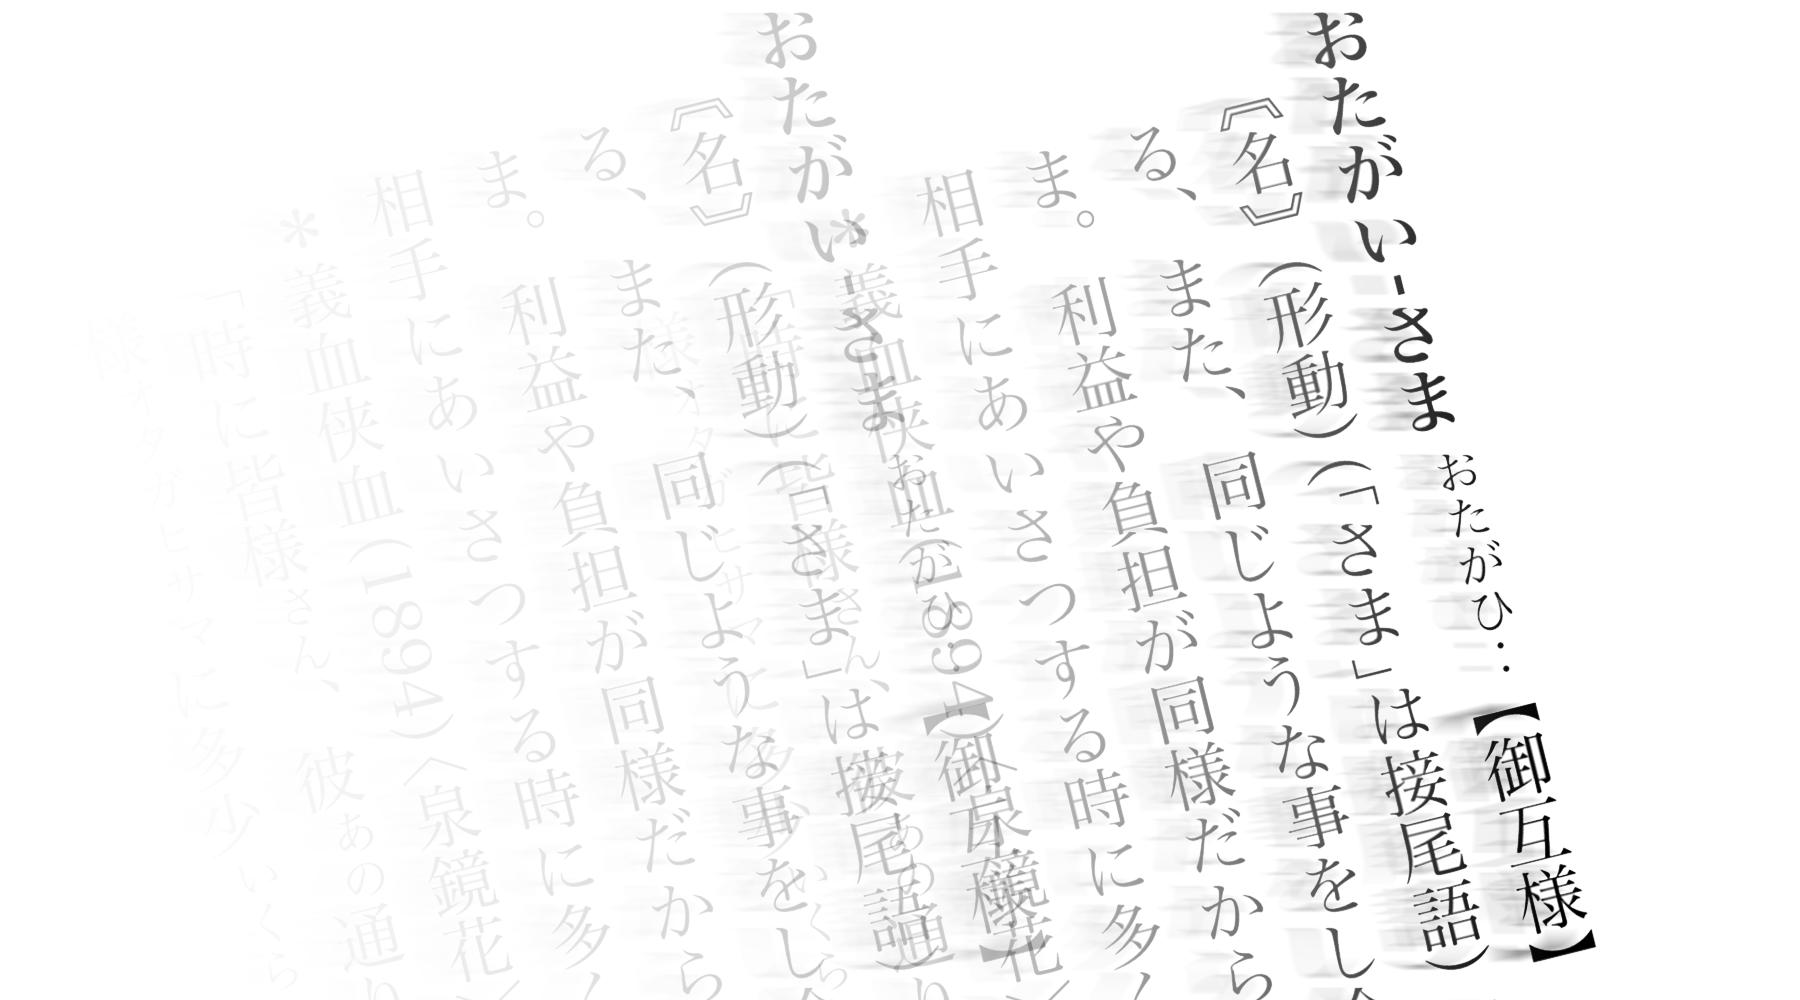 おたがい-さま おたがひ‥【御互様】
《名》(形動)(「さま」は接尾語)
る、また、同じような事をし
ま。利益や負担が同様だから
相手にあいさつする時に多
*義血侠血(1894)〈泉鏡花
「時に皆様さん、彼あの通り
様オタガヒサマに多少いくら